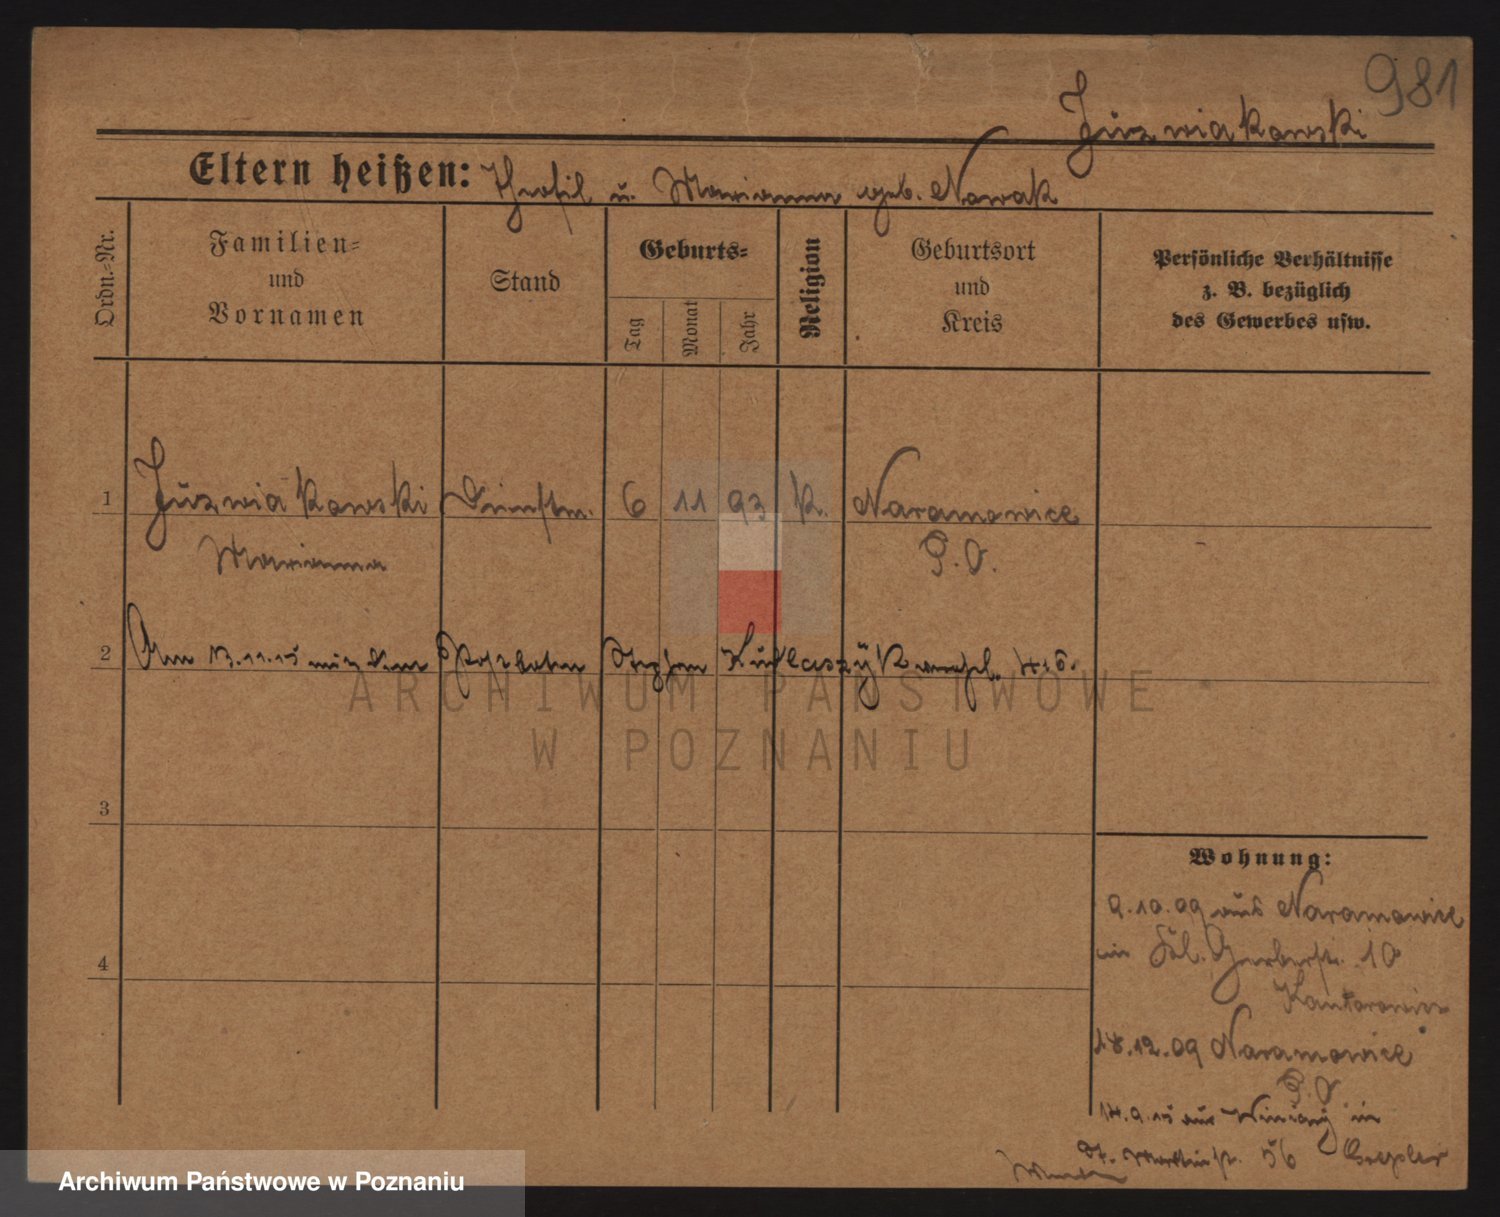 981
Juzwiakowski
Eltern heißen: Theofil u. Marianna geb. Nowak
Ordn.=Nr.
Familien=
und
Vornamen
Stand
Geburts=
Tag
Monat
Jahr
Religion
Geburtsort
und
Kreis
Persönliche Verhältnisse
z. B. bezüglich
des Gewerbes usw.
1 Juzwiakowski Dienstm. 6 11 93 K. Naramowice
Marianna P. O.
2 Am 13.11.15 mit dem Postboten Stephan verehel.
3
4
Wohnung:
9.10.09 aus Naramowice
in Gerberstr. 10
Kantorowicz
18.12.09 Naramowice
P. O.
14.9.15 aus Winiary in
St. Martinstr. 56
ARCHIWUM PAŃSTWOWE
W POZNANIU
Archiwum Państwowe w Poznaniu